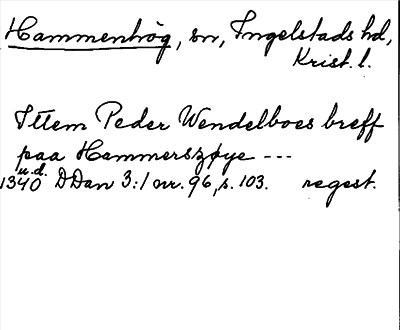 Hammenhög, sn, Ingelstads hd,
Krist. l.
Ittem Peder Wendelboes breff
paa Hammerszøye ---
u.d.
1340 DDan 3:1 nr. 96, s. 103. regest.